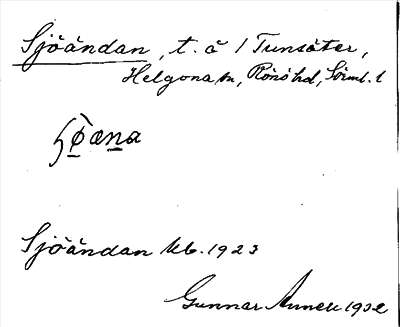 Sjöändan, t. å 1 Tunsäter,
Helgona sn, Rönö hd, Sörml. l
Sjöändan Kb. 1923
Gunnar Annell 1932